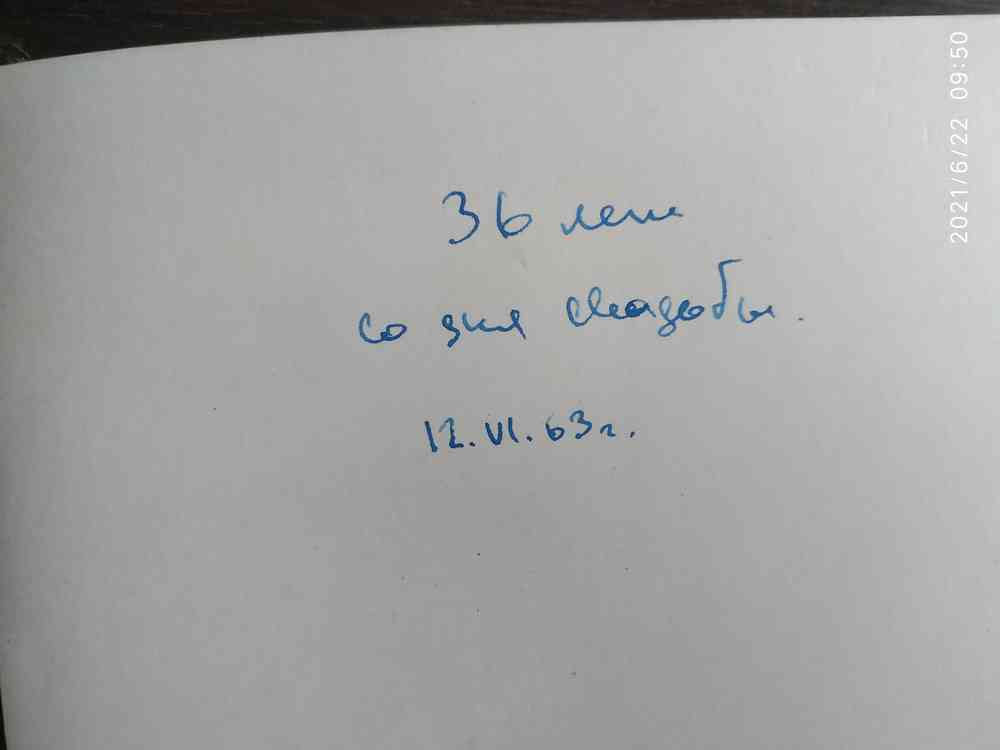 36 лет
со дня свадьбы.
12.VI.63г.
2021/6/22 09:50